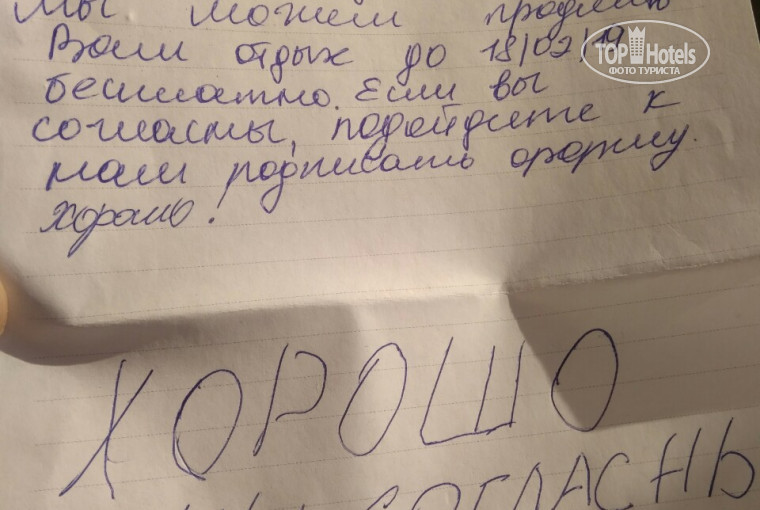 Мы можем продлить
Вам отдых до 18/02/19
бесплатно. Если вы
согласны, подойдите к
нам подписать форму.
хорошо!
ХОРОШО
СОГЛАСНЫ
TOP Hotels
ФОТО ТУРИСТА